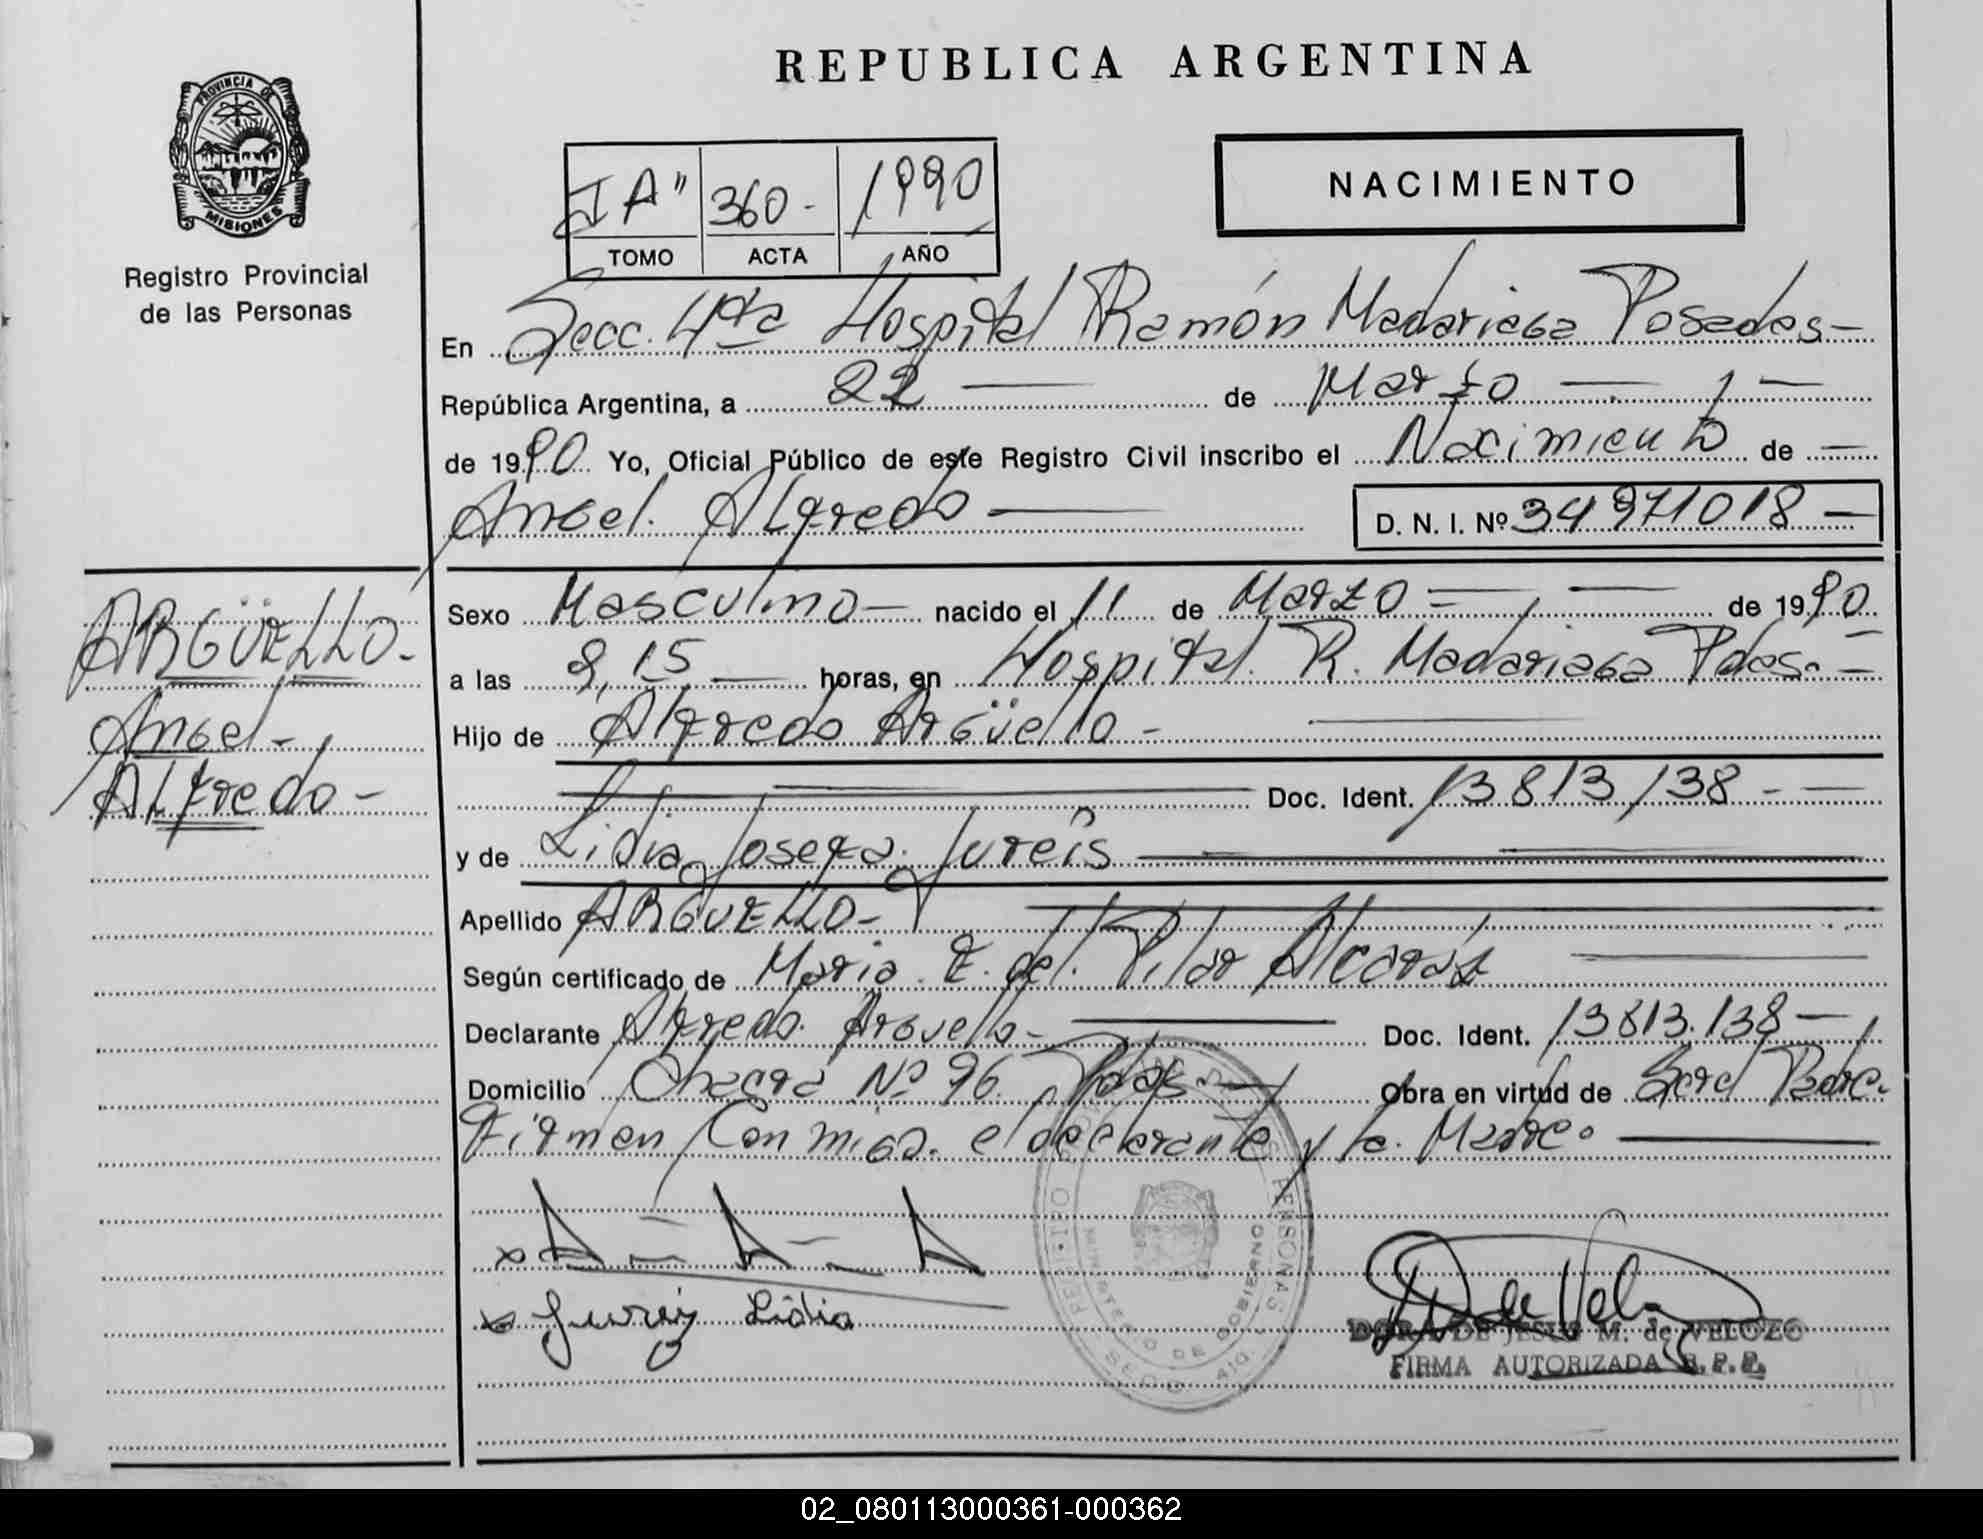 REPUBLICA ARGENTINA
PROVINCIA DE
MISIONES
Registro Provincial
de las Personas
NACIMIENTO
IA" 360- 1990
TOMO ACTA AÑO
En Secc. 4ta Hospital Ramón Madariaga Posadas-
República Argentina, a 22 de Marzo
de 1990 Yo, Oficial Público de este Registro Civil inscribo el Nacimiento de
Angel Alfredo D. N. I. Nº 34971018
ARGÜELLO-
Angel-
Alfredo-
Sexo Masculino nacido el 11 de Marzo de 1990
a las 9,15 horas, en Hospital R. Madariaga Pdas.
Hijo de Alfredo Argüello-
Doc. Ident. 13813138
y de Lidia Josefa
Apellido ARGUELLO-
Según certificado de Maria E. del Pilar Alcaráz
Declarante Alfredo Arguello- Doc. Ident. 13813.138
Domicilio Chacra Nº 96 Pdas Obra en virtud de Ser el Padre.
Firman Conmigo el declarante y la Madre.
x A-A-A
x Lidia
DORA DE JESUS M. de VELOZO
FIRMA AUTORIZADA R.P.P.
MINISTERIO DE GOBIERNO
02_080113000361-000362